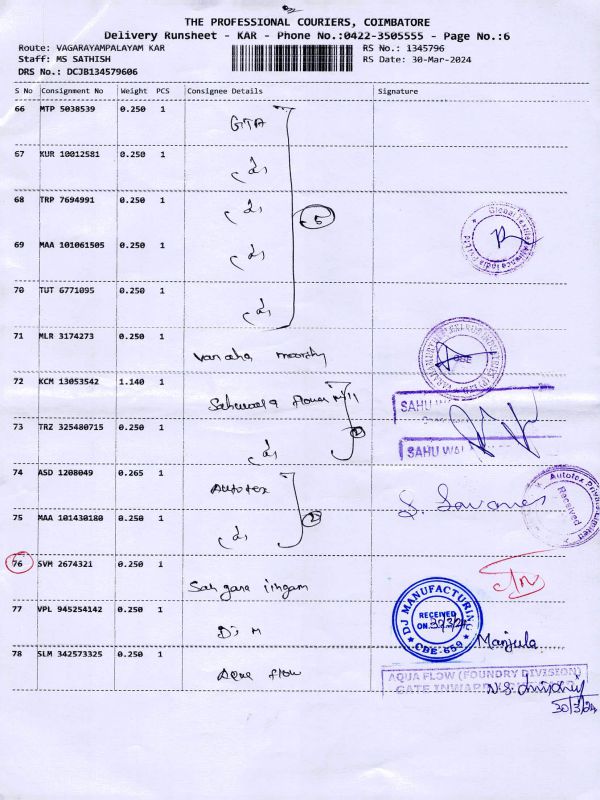 THE PROFESSIONAL COURIERS, COIMBATORE
Delivery Runsheet - KAR - Phone No.:0422-3505555 - Page No.:6
Route: VAGARAYAMPALAYAM KAR RS No.: 1345796
Staff: MS SATHISH RS Date: 30-Mar-2024
DRS No.: DCJB134579606
S No Consignment No Weight PCS Consignee Details Signature
66 MTP 5038539 0.250 1 GTA
67 KUR 10012581 0.250 1
68 TRP 7694991 0.250 1
5
Global Textile Alliance India
69 MAA 101061505 0.250 1
70 TUT 6771095 0.250 1
71 MLR 3174273 0.250 1
72 KCM 13053542 1.140 1
SAHU WAL
73 TRZ 325480715 0.250 1 2
SAHU WAL
74 ASD 1208049 0.265 1 Autotex
Autotex Private Limited
Received
75 MAA 101430180 0.250 1 2
76 SVM 2674321 0.250 1
77 VPL 945254142 0.250 1 DJ M
DJ MANUFACTURING
RECEIVED
ON
CBE-659
Manjula
78 SLM 342573325 0.250 1 Aqua flow
AQUA FLOW (FOUNDRY DIVISION)
GATE INWARD
30/3/24